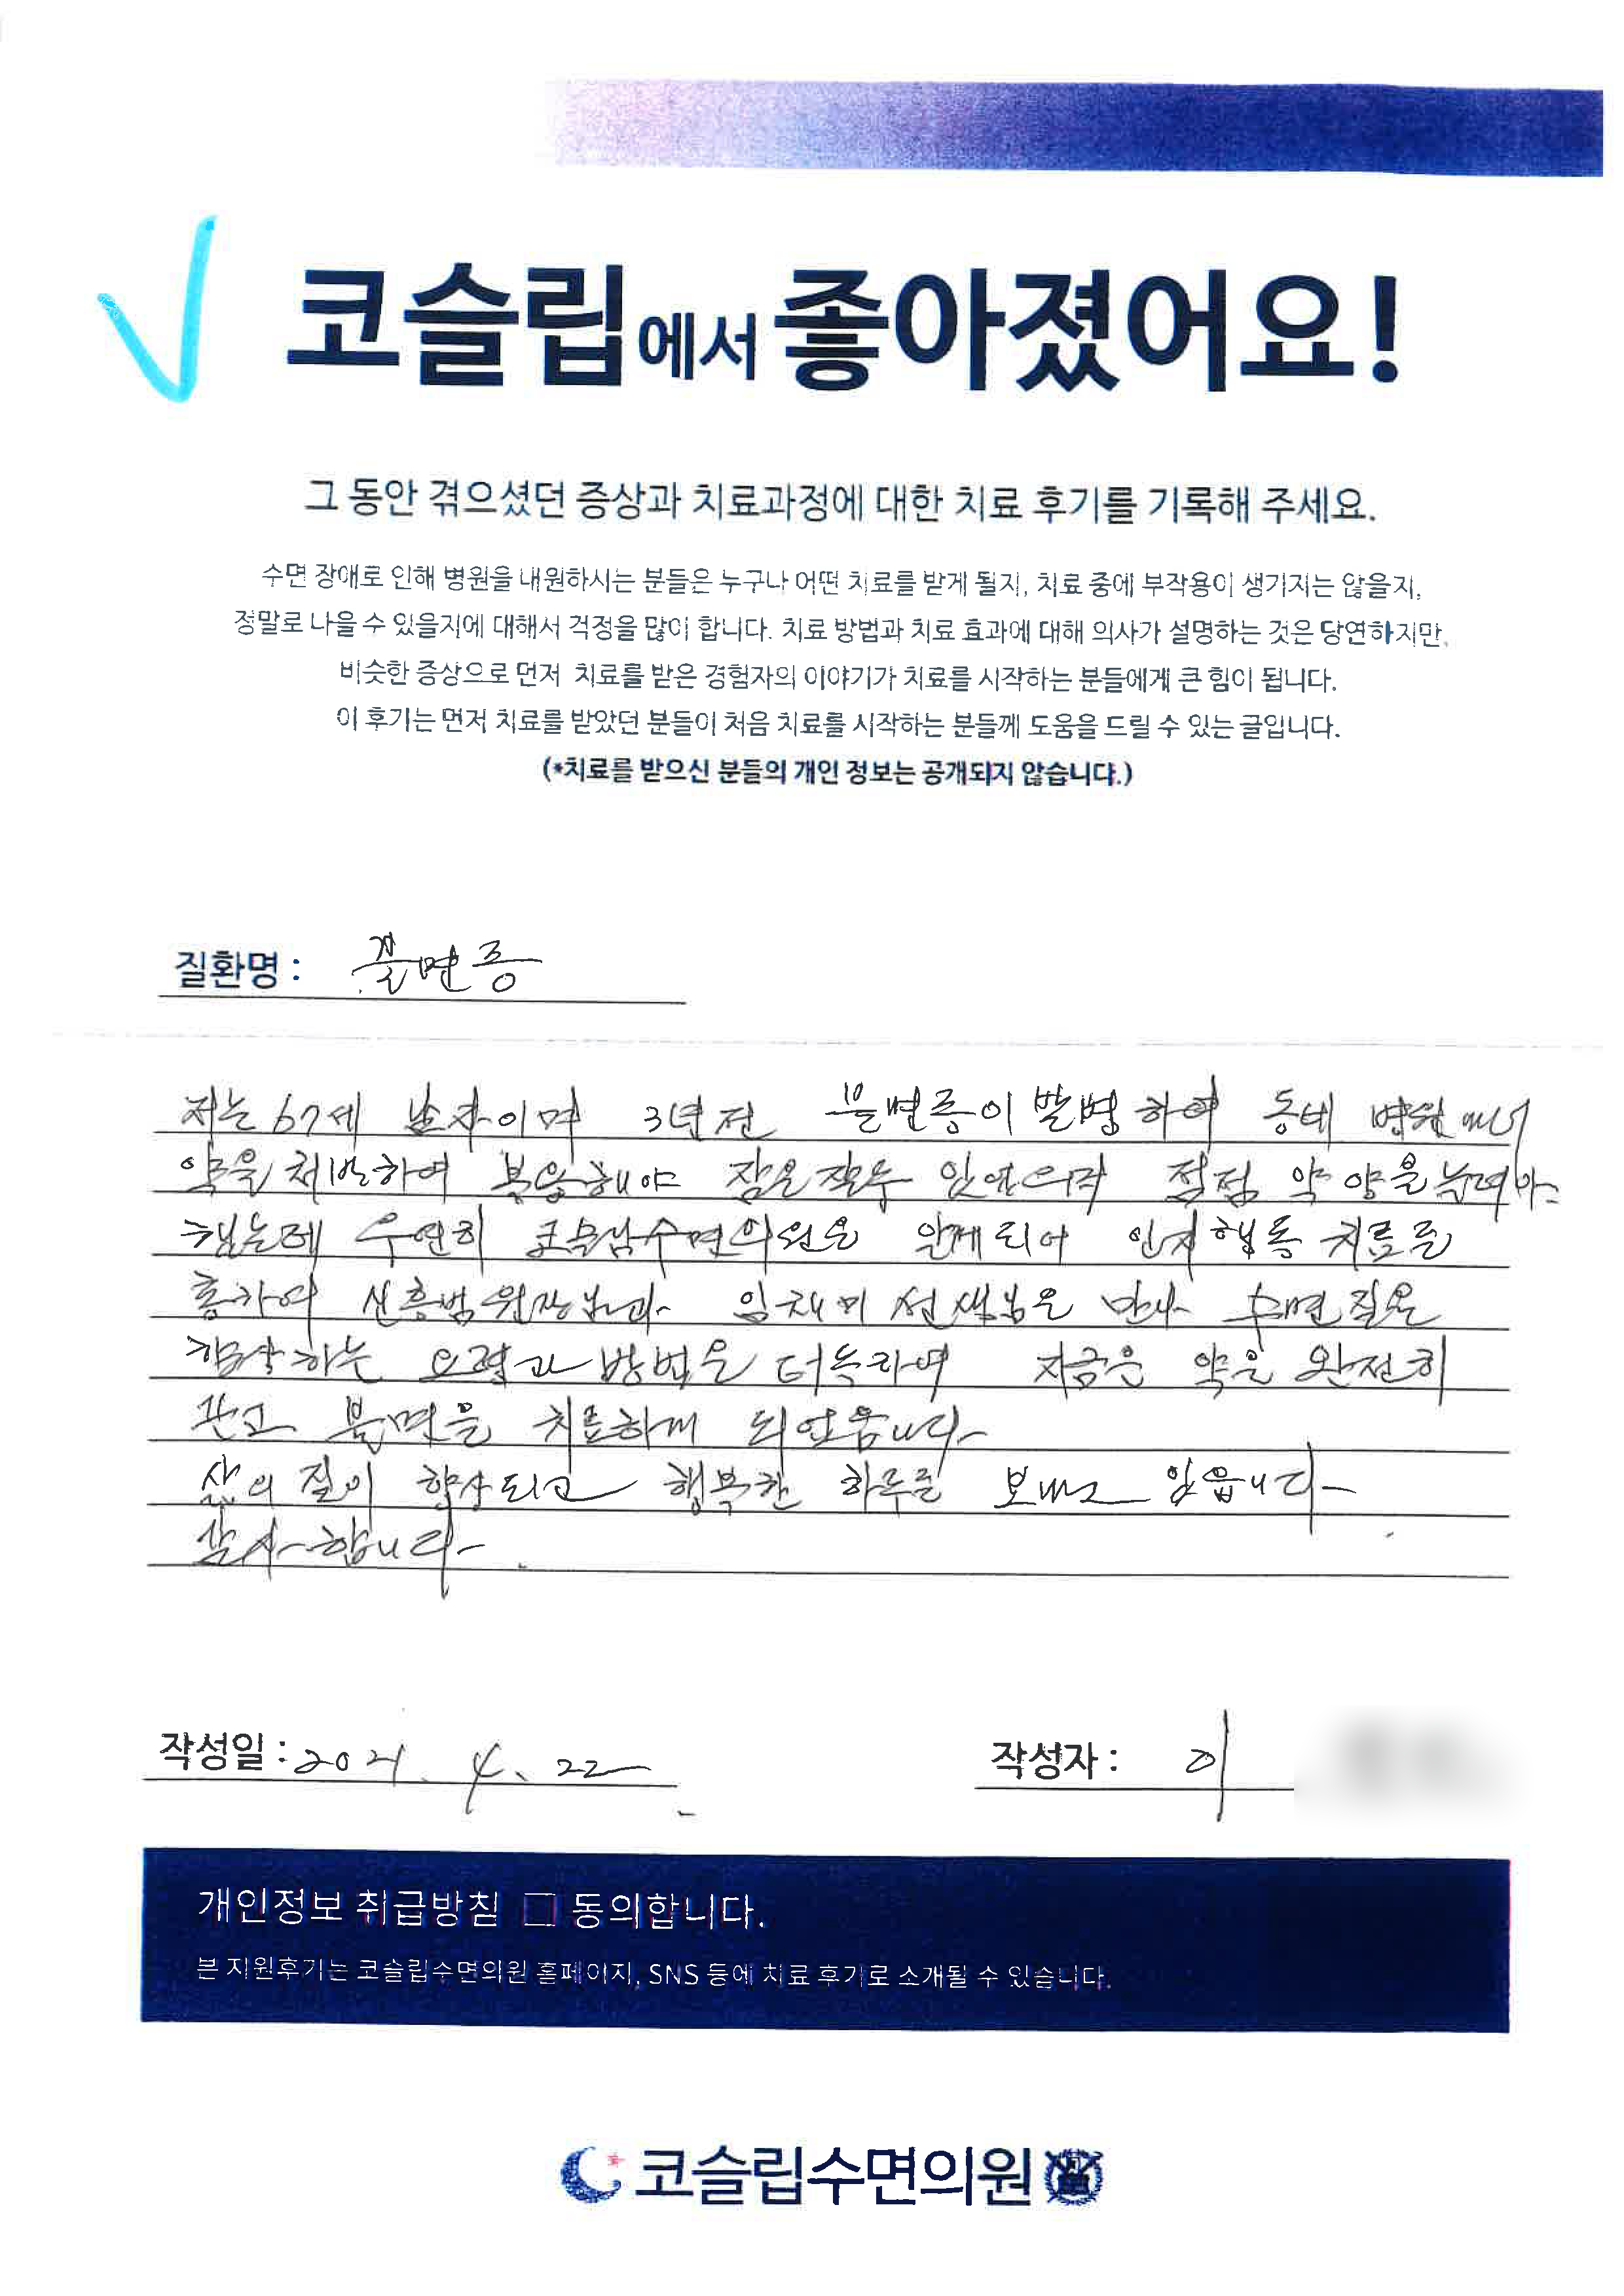 코슬립에서 좋아졌어요!
그 동안 겪으셨던 증상과 치료과정에 대한 치료 후기를 기록해 주세요.
수면 장애로 인해 병원을 내원하시는 분들은 누구나 어떤 치료를 받게 될지, 치료 중에 부작용이 생기지는 않을지,
정말로 나을 수 있을지에 대해서 걱정을 많이 합니다. 치료 방법과 치료 효과에 대해 의사가 설명하는 것은 당연하지만,
비슷한 증상으로 먼저 치료를 받은 경험자의 이야기가 치료를 시작하는 분들에게 큰 힘이 됩니다.
이 후기는 먼저 치료를 받았던 분들이 처음 치료를 시작하는 분들께 도움을 드릴 수 있는 글입니다.
(*치료를 받으신 분들의 개인 정보는 공개되지 않습니다.)
질환명 : 불면증
저는 67세 남자이며 3년전 불면증이 발병하여 동네 병원에서
약을 처방하여 복용해야 잠을 잘수 있었으며 점점 약 양을 늘려야
했는데 우연히 코슬립수면의원을 알게되어 인지행동 치료를
통하여 신홍범원장님과 임채미 선생님을 만나 수면질을
향상하는 요령과 방법을 터득하여 지금은 약을 완전히
끊고 불면을 치료하게 되었읍니다
삶의 질이 향상되고 행복한 하루를 보내고 있읍니다
감사합니다.
작성일 : 2021. 4. 22
작성자 : 이
개인정보 취급방침 □ 동의합니다.
본 지원후기는 코슬립수면의원 홈페이지, SNS 등에 치료 후기로 소개될 수 있습니다.
코슬립수면의원